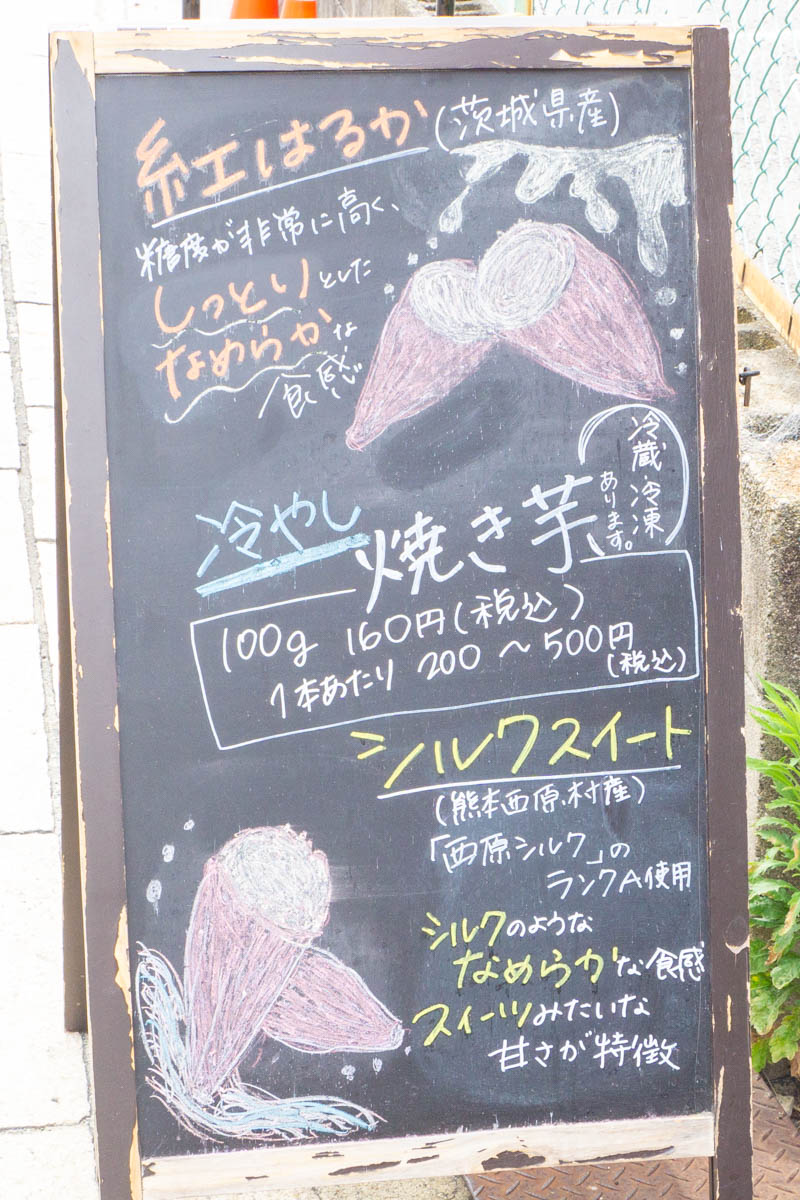 紅はるか(茨城県産)
糖度が非常に高く、
しっとりとした
なめらかな
食感
冷蔵冷凍
あります。
冷やし焼き芋、
100g 160円(税込)
1本あたり 200～500円
(税込)
シルクスイート
(熊本西原村産)
「西原シルク」の
ランクA使用
シルクのような
なめらかな食感
スイーツみたいな
甘さが特徴